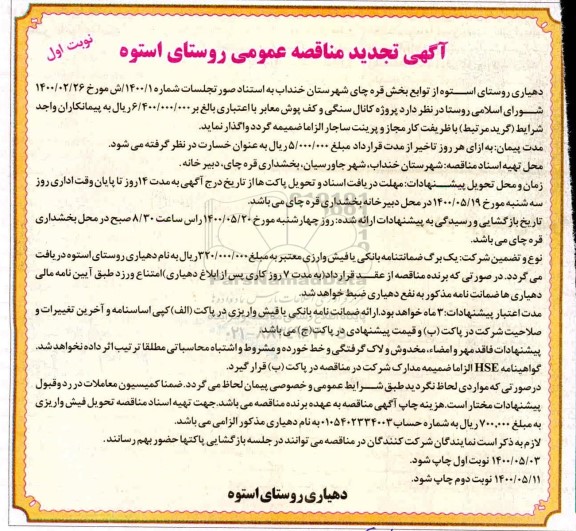 نوبت اول
آگهی تجدید مناقصه عمومی روستای استوه
دهیاری روستای استوه از توابع بخش قره چای شهرستان خنداب به استناد صورتجلسات شماره ۱۴۰۰/۱/ش مورخ ۱۴۰۰/۰۲/۲۶
شورای اسلامی روستا در نظر دارد پروژه کانال سنگی و کف پوش معابر با اعتباری بالغ بر ۶/۴۰۰/۰۰۰/۰۰۰ ریال به پیمانکاران واجد
شرایط (گرید مرتبط) با ظرفیت کار مجاز و پرینت ساجار الزاما ضمیمه گردد واگذار نماید.
مدت پیمان: به ازای هر روز تاخیر از مدت قرارداد مبلغ ۵/۰۰۰/۰۰۰ ریال به عنوان خسارت در نظر گرفته می شود.
محل تهیه اسناد مناقصه: شهرستان خنداب، شهر جاورسیان، بخشداری قره چای، دبیر خانه.
زمان و محل تحویل پیشنهادات: مهلت دریافت اسناد و تحویل پاکت ها از تاریخ درج آگهی به مدت ۱۴ روز تا پایان وقت اداری روز
سه شنبه مورخ ۱۴۰۰/۰۵/۱۹ در محل دبیر خانه بخشداری قره چای می باشد.
تاریخ بازگشایی و رسیدگی به پیشنهادات ارائه شده: روز چهارشنبه مورخ ۱۴۰۰/۰۵/۲۰ راس ساعت ۸/۳۰ صبح در محل بخشداری
قره چای می باشد.
نوع و تضمین شرکت: یک برگ ضمانتنامه بانکی یا فیش وارزی معتبر به مبلغ ۳۲۰/۰۰۰/۰۰۰ ریال به نام دهیاری روستای استوه دریافت
می گردد. در صورتی که برنده مناقصه از عقد قرارداد (به مدت ۷ روز کاری پس از ابلاغ دهیاری) امتناع ورزد طبق آیین نامه مالی
دهیاری ها ضمانت نامه مذکور به نفع دهیاری ضبط خواهد شد.
مدت اعتبار پیشنهادات: ۳ ماه خواهد بود. ارائه ضمانت نامه بانکی یا فیش واریزی در پاکت (الف) کپی اساسنامه و آخرین تغییرات و
صلاحیت شرکت در پاکت (ب) و قیمت پیشنهادی در پاکت (ج) می باشد.
پیشنهادات فاقد مهر و امضاء، مخدوش و لاک گرفتگی و خط خورده و مشروط و اشتباه محاسباتی مطلقا ترتیب اثر داده نخواهد شد.
گواهینامه HSE الزاما ضمیمه مدارک شرکت در مناقصه در پاکت (ب) قرار گیرد.
در صورتی که مواردی لحاظ نگردید طبق شرایط عمومی و خصوصی پیمان لحاظ می گردد. ضمنا کمیسیون معاملات در رد و قبول
پیشنهادات مختار است. هزینه چاپ آگهی مناقصه به عهده برنده مناقصه می باشد. جهت تهیه اسناد مناقصه تحویل فیش واریزی
به مبلغ ۷۰۰.۰۰۰ ریال به شماره حساب ۰۱۰۵۴۰۲۳۳۴۰۰۳ به نام دهیاری مذکور الزامی می باشد.
لازم به ذکر است نمایندگان شرکت کنندگان در مناقصه می توانند در جلسه بازگشایی پاکتها حضور بهم رسانند.
۱۴۰۰/۰۵/۰۳ نوبت اول چاپ شود.
۱۴۰۰/۰۵/۱۱ نوبت دوم چاپ شود.
دهیاری روستای استوه